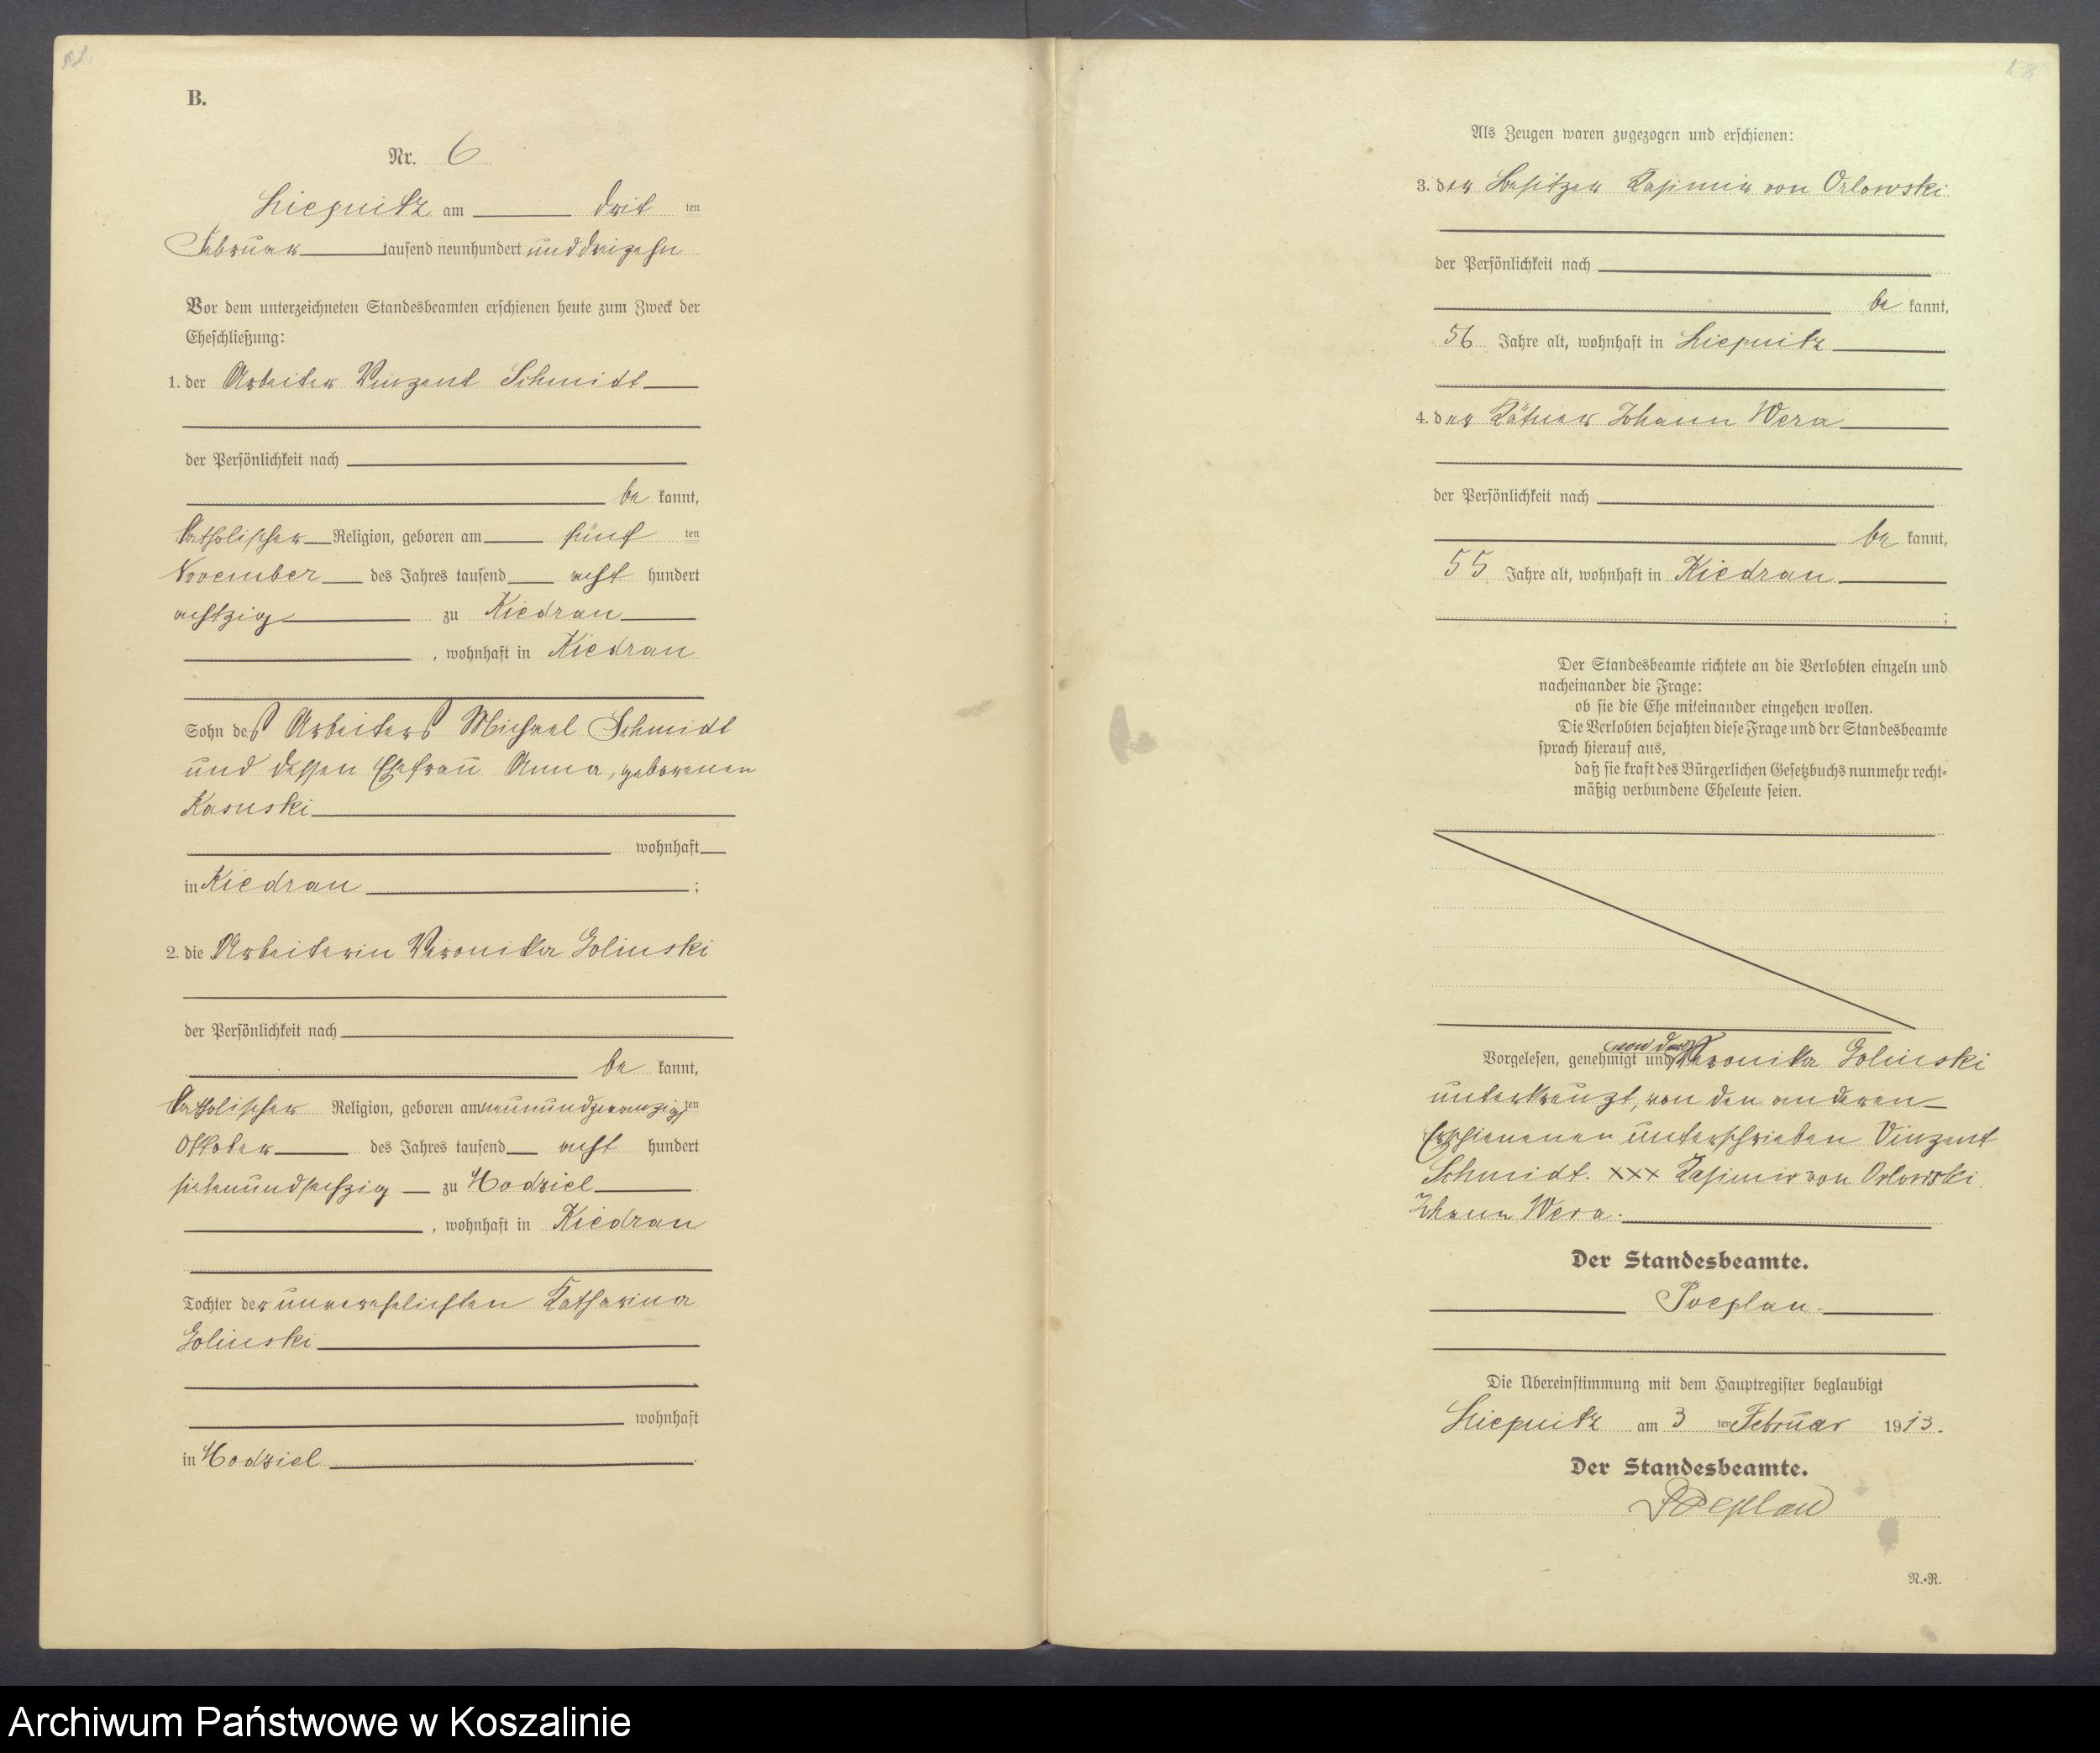 B.
Nr. 6
Liepnitz am drit ten
Februar tausend neunhundert und dreizehn
Vor dem unterzeichneten Standesbeamten erschienen heute zum Zweck der
Eheschließung:
1. der Arbeiter Vinzent Schmidt
der Persönlichkeit nach
be kannt,
katholischer Religion, geboren am fünf ten
November des Jahres tausend acht hundert
achtzig zu Kiedrau
, wohnhaft in Kiedrau
Sohn des Arbeiters Michael Schmidt
und dessen Ehefrau Anna, geborenen
wohnhaft
in Kiedrau ;
2. die Arbeiterin Veronika Golinski
der Persönlichkeit nach
be kannt,
katholischer Religion, geboren am neunundzwanzig ten
Oktober des Jahres tausend acht hundert
siebenundsechzig zu Modziel
, wohnhaft in Kiedrau
Tochter der unverehelichten Katharina
Golinski
wohnhaft
in Modziel
Als Zeugen waren zugezogen und erschienen:
3. der Besitzer Kasimir von Orlowski
der Persönlichkeit nach
be kannt,
56 Jahre alt, wohnhaft in Liepnitz
4. der Kätner Johann Wera
der Persönlichkeit nach
be kannt,
55 Jahre alt, wohnhaft in Kiedrau
;
Der Standesbeamte richtete an die Verlobten einzeln und
nacheinander die Frage:
ob sie die Ehe miteinander eingehen wollen.
Die Verlobten bejahten diese Frage und der Standesbeamte
sprach hierauf aus,
daß sie kraft des Bürgerlichen Gesetzbuchs nunmehr recht-
mäßig verbundene Eheleute seien.
von der
Vorgelesen, genehmigt und Veronika Golinski
unterkreuzt, von den anderen
Erschienenen unterschrieben Vinzent
Schmidt. xxx Kasimir von Orlowski.
Johann Wera.
Der Standesbeamte.
Poeplau.
Die Übereinstimmung mit dem Hauptregister beglaubigt
Liepnitz am 3 ten Februar 1913.
Der Standesbeamte.
Poeplau
N.-R.
Archiwum Państwowe w Koszalinie